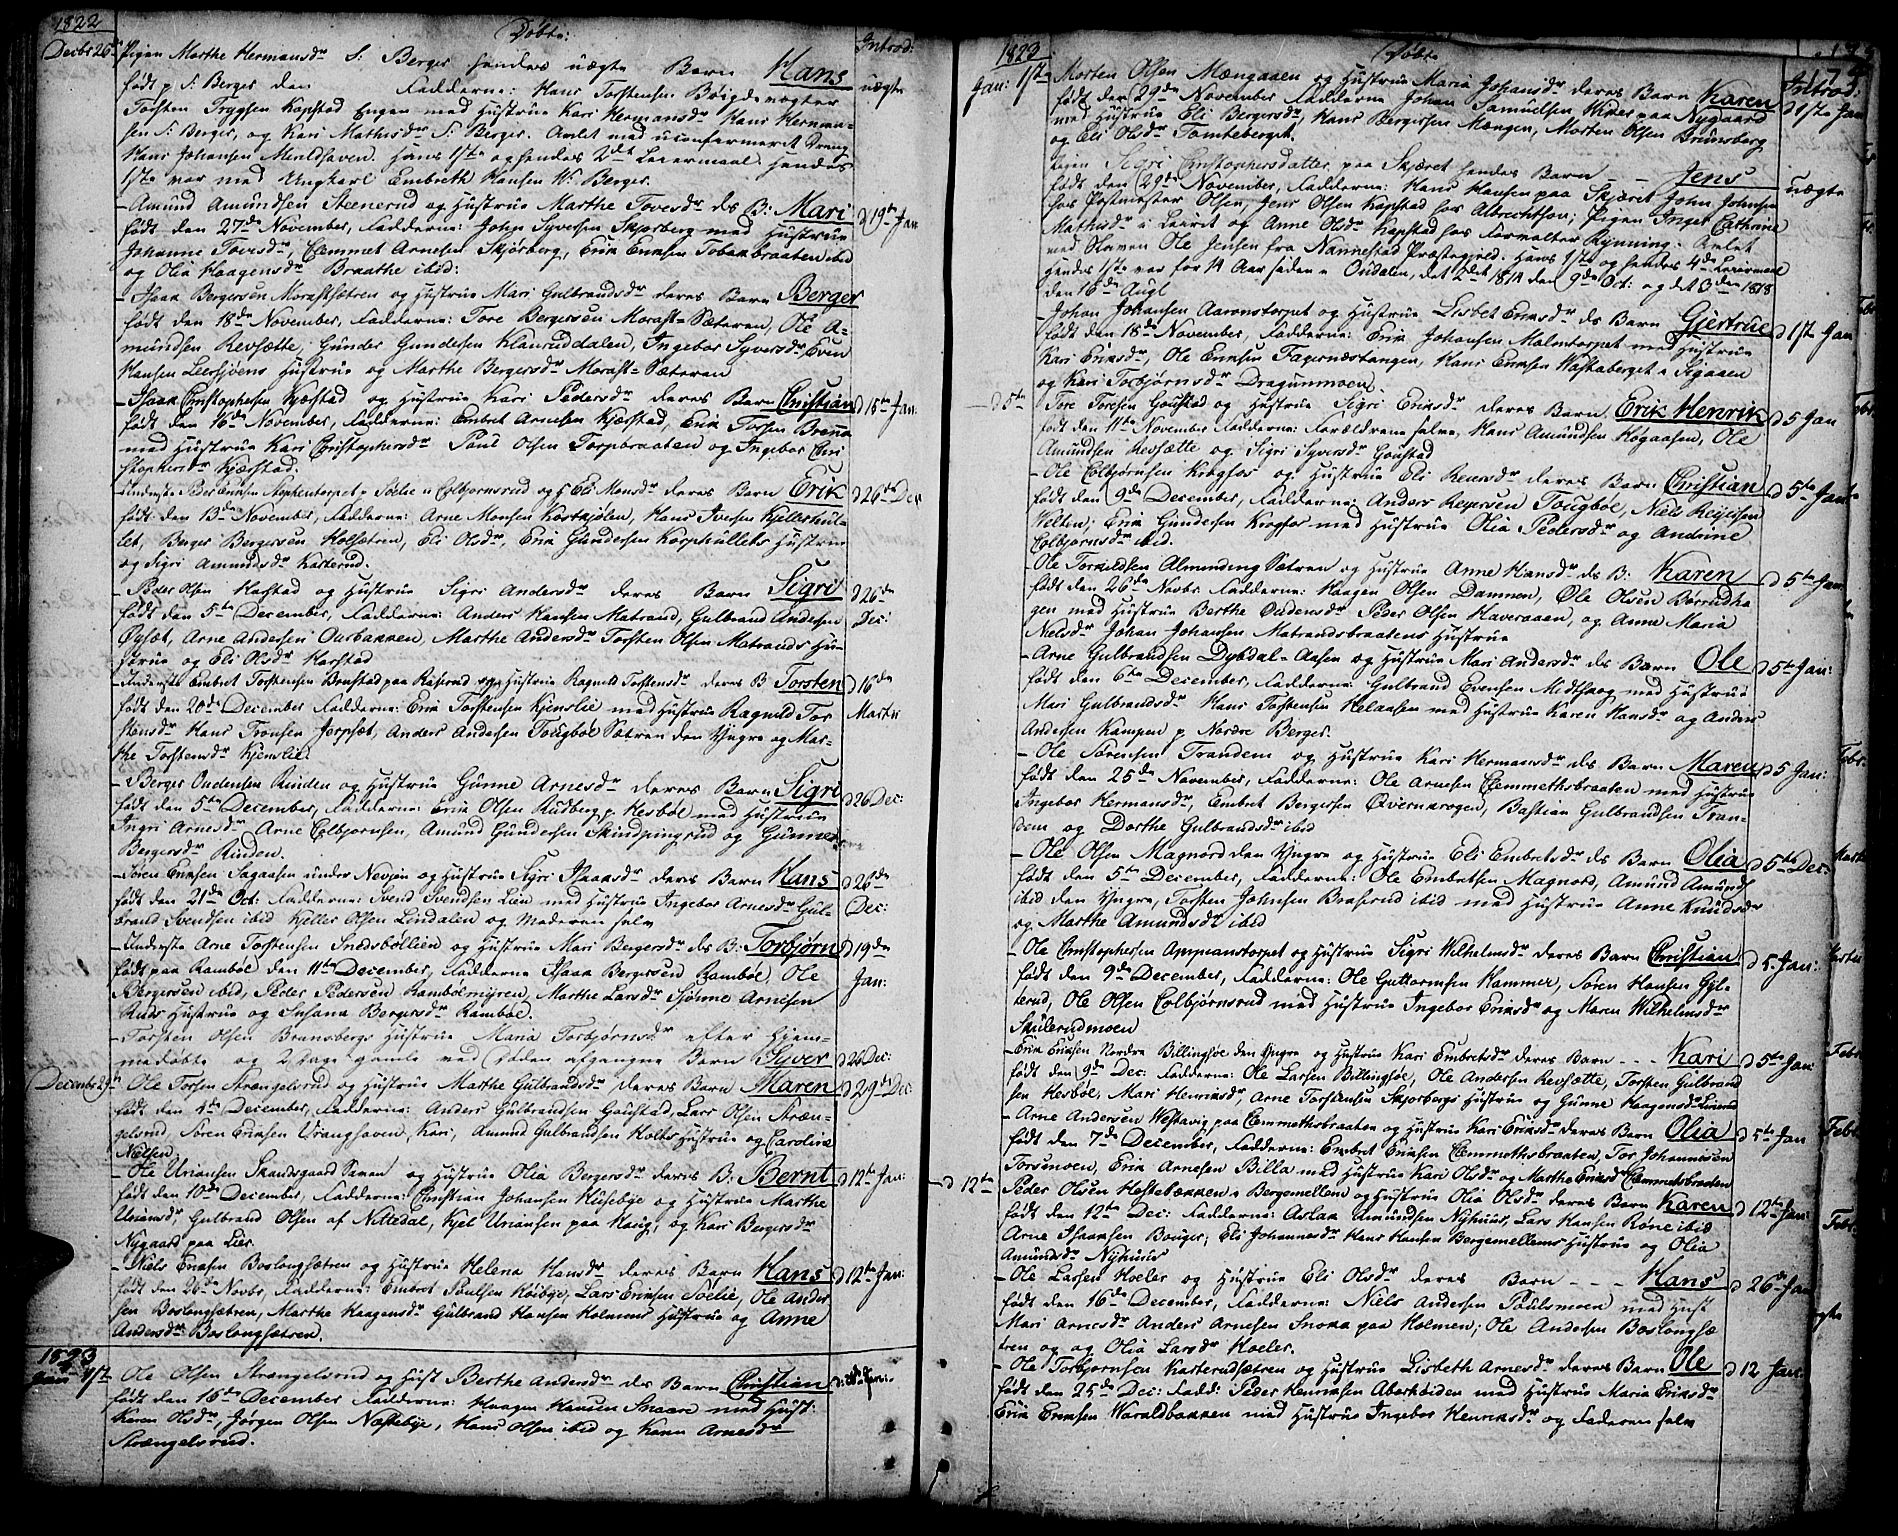 1822
Døbte:
Introd:
Decbr 26de Pigen Marthe Hermansdr S: Berger hendes uægte Barn Hans
født p S: Berger den Fadderne: Hans Torstensen uægte
Torsten Tryggsen Kapstad Engen med Hustrue Kari Hermansdr Hans Herman-
sen S: Berger, og Kari Mathisdr S: Berger. Avlet med uconfirmeret Dreng
Hans Johansen Hans 1ste og hendes 2det Leiermaal. Hendes
1ste var med Ungkarl Embreth Hansen N: Berger.
- Amund Amundsen Steenerud og Hustrue Marthe Toresdr ds B: Mari d 19de Jan
født den 27de November, Fadderne: John Syversen Skjørberg med Hustrue
Johanne Toresdr, Clemmet Arnesen Skjørberg, Erik Eriksen Tobakbraaten ibid
og Olia Haagensdr Braathe ibid:
- Isaak Bergersen Morastsætren og Hustrue Mari Gulbrandsdr deres Barn Berger
født den 18de November, Fadderne: Tore Bergersen Morast-Sæteren, Ole A-
mundsen Revsætte, Gunder Gundersen Klanruddalen, Ingebor Syversdr Even
Hansen Leersjøens Hustrue og Marthe Bergersdr Morast-Sæteren
- Isaak Christophersen Kjærstad og Hustrue Kari Pedersdr deres Barn Christian d 15de Jan.
født den 16de November, Fadderne: Embret Arnesen Kjærstad, Erik Torsen Brænna
med Hustrue Kari Christophersdr Paul Olsen Torpbraaten og Ingebor Chri
stophersdr Kjærstad.
Inderste Ber Eriksen Stophentorpet p Sølie u Colbjørnsrud og H Eli Monsdr deres Barn Erik d 26de Dec
født den 13de November, Fadderne: Arne Monsen Kostkjølen, Hans Iversen Kjellerhul-
let, Berger Bergersen Holsætren, Eli Olsdr, Erik Gundersen Korphullets Hustrue
og Sigri Amundsdr Kasterud.
- Peder Olsen Harstad og Hustrue Sigri Andersdr deres Barn Sigri d 26de
født den 5te December, Fadderne: Anders Hansen Matrand, Gulbrand Andersen Dec:
Øysæt, Arne Andersen Ourbakken, Marthe Andersdr Torsten Olsen Matrands Hu-
strue og Eli Olsdr Harstad
- Inderste Embret Torstensen Brustad paa Raserud og Hustrue Ragnild Torstensdr deres B Torsten d 16de
født den 20de December Fadderne: Erik Torstensen Kjenslie med Hustrue Ragnild Tor Martii
stensdr Hans Tronsen Jerpset, Anders Andersen Tougbøl Sætren den Yngre og Mar-
the Torstensdr Kjenslie.
- Berger Oudensen Rinden og Hustrue Gunne Arnesdr deres Barn Sigri d 26 Dec:
født den 5te December, Fadderne: Erik Olsen Rudberg p Hesbøl med Hustrue
Ingri Arnesdr Arne Colbjørnsen, Amund Gundersen Skindpungrud og Gunne
Bergersdr Rinden.
- Søren Eriksen Sagaasen under Nevsjøn og Hustrue Sigri Isaaksdr deres Barn Hans d 26de
født den 21de Oct: Fadderne: Svend Svendsen Lien med Hustrue Ingebor Arnesdr Gul- Dec:
brand Svendsen ibid Kjeller Olsen Lindalen og Moderen selv
- Inderste Arne Torstensen Snedsbøllien og Hustrue Mari Bergersdr ds B: Torbjørn d 19de
født paa Rambøl den 11te December, Fadderne Isaak Bergersen Rambøl, Ole Jan:
Bergersen ibid, Peder Pedersen Rambølmyren, Marthe Larsdr Sjønne Arnesen
Ruds Hustrue og Susana Bergersdr Rambøl.
- Torsten Olsen Brunsbergs Hustrue Maria Torbjørnsdr efter Hjem-
medøbte og 2 Dage gamle ved Døden afgangne Barn Syver d 26 Dec:
Decembr 29de - Ole Torsen Strængelsrud og Hustrue Marthe Gulbrandsdr deres Barn Maren d 29de Dec
født den 4de December, Fadderne: Anders Gulbrandsen Goustad, Lars Olsen Stræn-
gelsrud, Søren Eriksen Vranghaven, Kari, Amund Gulbrandsen Holts Hustrue og Carolina
Nielsen
- Ole Uriansen Skandsgaard Simen og Hustrue Olia Bergersdr deres B: Bernt d 12te Jan:
født den 10de December, Fadderne: Christian Johansen Husebye og Hustrue Marthe
Uriansdr, Gulbrand Olsen af Nittedal, Kjel Uriansen paa Haug, og Kari Bergersdr
Nygaard paa Lier
- Niels Eriksen Boslongsætren og Hustrue Helena Hansdr deres Barn Hans d 12te Jan:
født den 26de Novbr, Fadderne: Embret Poulsen Høibye, Lars Eriksen Sølie, Ole Ander
sen Boslongsætren, Marthe Haagensdr Gulbrand Hansen Holmens Hustrue og Anne
Andersdr Boslongsætren.
1823
Jan 1ste Ole Olsen Strængelsrud og Hust Berthe Andersdr des Barn Christian
født den 16de December Fadderne: Haagen Hansen Snaare med Hust:
Karen Olsdr, Jørgen Olsen Næstebye, Hans Olsen ibid og Karen Arnesdr
Strængelsrud.
1823
Døbte
Introd:
Jan: 1ste Morten Olsen Mængaaen og Hustrue Maria Johansdr deres Barn Karen d 1ste Jan
født den 29de November Fadderne Johan Samuelsen Viker paa Nygaard
med Hustrue Eli Bergersdr, Hans Bergersen Mængen, Morten Olsen Brunsberg
og Eli Olsdr Tomteberget.
Pigen Sigri Christophersdatter paa Skjæret hendes Barn - - Jens uægte
født den 29de November, Fadderne: Hans Hansen paa Skjæret John Johnsen
hos Postmester Olsen, Jens Olsen Kapstad hos Albrechtson; Pigen Inger Cathrine
Mathisdr i Leiret og Anne Olsdr Kapstad hos Forvalter Rynning. Avlet
med Ole Jensen fra Nannestad Præstegjeld. Hans 1ste og hendes 4de Leiermaal
Hendes 1ste var for 14 Aar siden i Oudalen, det 2det 1814 den 9de Oct: og det 3die 1818
den 16de Augt
- Johan Johansen Aarenstorpet og Hustrue Lisbet Eriksdr ds Barn Gjertrue d 1ste Jan
født den 18de November, Fadderne: Erik Johansen Malmtorpet med Hustrue
Kari Eriksdr, Ole Eriksen Fagernæstangen, Hans Eriksen Vastaberget i Sigaaen
og Kari Torbjørnsdr Dragonmoen
- d 5te Tore Toresen Goustad og Hustrue Sigri Eriksdr deres Barn Erik Henrik d 5 Jan
født den 11te November Fadderne: Forældrene selve, Hans Amundsen Høgaasen, Ole
Amundsen Revsætte og Sigri Syversdr Goustad
- Ole Colbjørnsen Krogfos og Hustrue Eli Reersdr deres Barn Christian d 5te Jan
født den 9de December, Fadderne: Anders Reiersen Tougbøl, Niels Reiersen
Velten; Erik Gundersen Krogfos med Hustrue Olia Pedersdr og Andrine
Colbjørnsdr ibid.
- Ole Torkildsen Almending Sætren og Hustrue Anne Hansdr ds B: Karen d 5te Jan
født den 26de Novbr Fadderne: Haagen Olsen Dammen, Ole Olsen Børrudha
gen med Hustrue Berthe Oudensdr Peder Olsen Haveraaen, og Anne Maria
Nielsdr Johan Johansen Matrandsbraatens Hustrue
- Arne Gulbrandsen Dybdal-Aasen og Hustrue Mari Andersdr ds Barn Ole d 5te Jan:
født den 6te December, Fadderne: Gulbrand Evensen Midtskog med Hustrue
Mari Gulbrandsdr Hans Torstensen Helaasen med Hustrue Karen Hansdr og Anders
Andersen Kampen p Nordre Berger.
- Ole Sørensen Trandem og Hustrue Kari Hermansdr ds Barn Maren d 5 Jan:
født den 25de November, Fadderne: Ole Arnesen Clemmethsbraaten med Hustrue
Ingebor Hermansdr, Embret Bergersen Overnkrogen, Bastian Gulbrandsen Tran-
dem og Dorthe Gulbrandsdr ibid
- Ole Olsen Magnord den Yngre og Hustrue Eli Embretsdr ds Barn Olia d 5te Dec:
født den 5te December, Fadderne: Ole Embretsen Magnord, Amund Amunds
ibid den Yngre, Torsten Johnsen Braserud ibid med Hustrue Anne Knudsdr
og Marthe Amundsdr ibid
- Ole Christophersen Ampiantorpet og Hustrue Sigri Wilhelmsdr deres Barn Christian d 5. Jan:
født den 9de December, Fadderne: Ole Guttormsen Hammer, Søren Hansen Gjil-
terud, Ole Olsen Colbjørnsrud med Hustrue Ingebor Eriksdr og Maren Wilhelmsdr
Skulerudmoen
Erik Eriksen Nordre Billingsøe den Yngre og Hustrue Kari Embretsdr deres Barn - - - Kari d 5te Jan
født den 9de Dec: Fadderne: Ole Larsen Billingsøe, Ole Andersen Revsætte, Torsten Gulbrand
sen Hesbøl, Mari Henriksdr, Arne Torstensen Skjørbergs Hustrue og Gunne Haagensdr
- Arne Andersen Westavig paa Clemmethsbraaten og Hustrue Kari Eriksdr deres Barn Olia d 5te Jan
født den 7de December, Fadderne: Embret Eriksen Clemmethsbraaten, Tor Johannesen
Torsmoen, Erik Arnesen Billa med Hustrue Kari Olsdr og Marthe Eriksdr Clemmetsbraaten
- d 12te Peder Olsen Heftebakken i Bergemellem og Hustrue Olia Olsdr deres Barn Karen d 12te Jan:
født den 12te Dec: Fadderne: Aslak Amundsen Nyhuus, Lars Hansen Røne ibid
Arne Isaaksen Bouger; Eli Johannesdr Hans Hansen Bergemellems Hustrue og Olia
Amundsdr Nyhuus
- Ole Larsen Hoeler og Hustrue Eli Olsdr deres Barn - - - Hans d 26de Jan
født den 16de December, Fadderne: Niels Andersen Poulsmoen med Hust
Mari Arnesdr Anders Arnesen Snoka paa Holmen; Ole Andersen Boslongsæ
tren og og Olia Larsdr Hoeler.
- Ole Torbjørnsen Kasterudsætren og Hustrue Lisbeth Arnesdr deres Barn Ole d 12 Jan:
født den 25de Dec: Fadd: Peder Henriksen Aborhøiden med Hustrue Maria Eriksdr
Erik Eriksen Waraldbakken med Hustrue Ingebor Henriksdr og Faderen selv